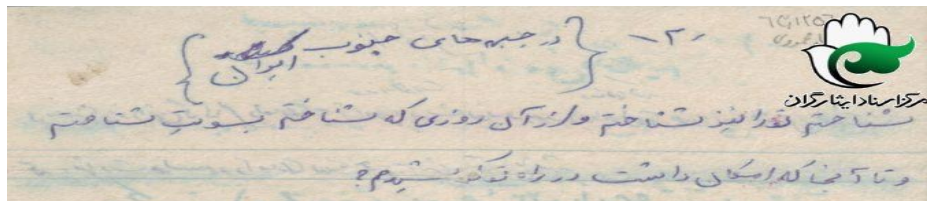 -۲-
{در جبهه های جنوب ایران}
مرکز اسناد ایثارگران
شناختم تو را نیز شناختم و از آن روزی که شناختم بسویت شتافتم
و تا آنجا که امکان داشت در راه تو کوشیدم